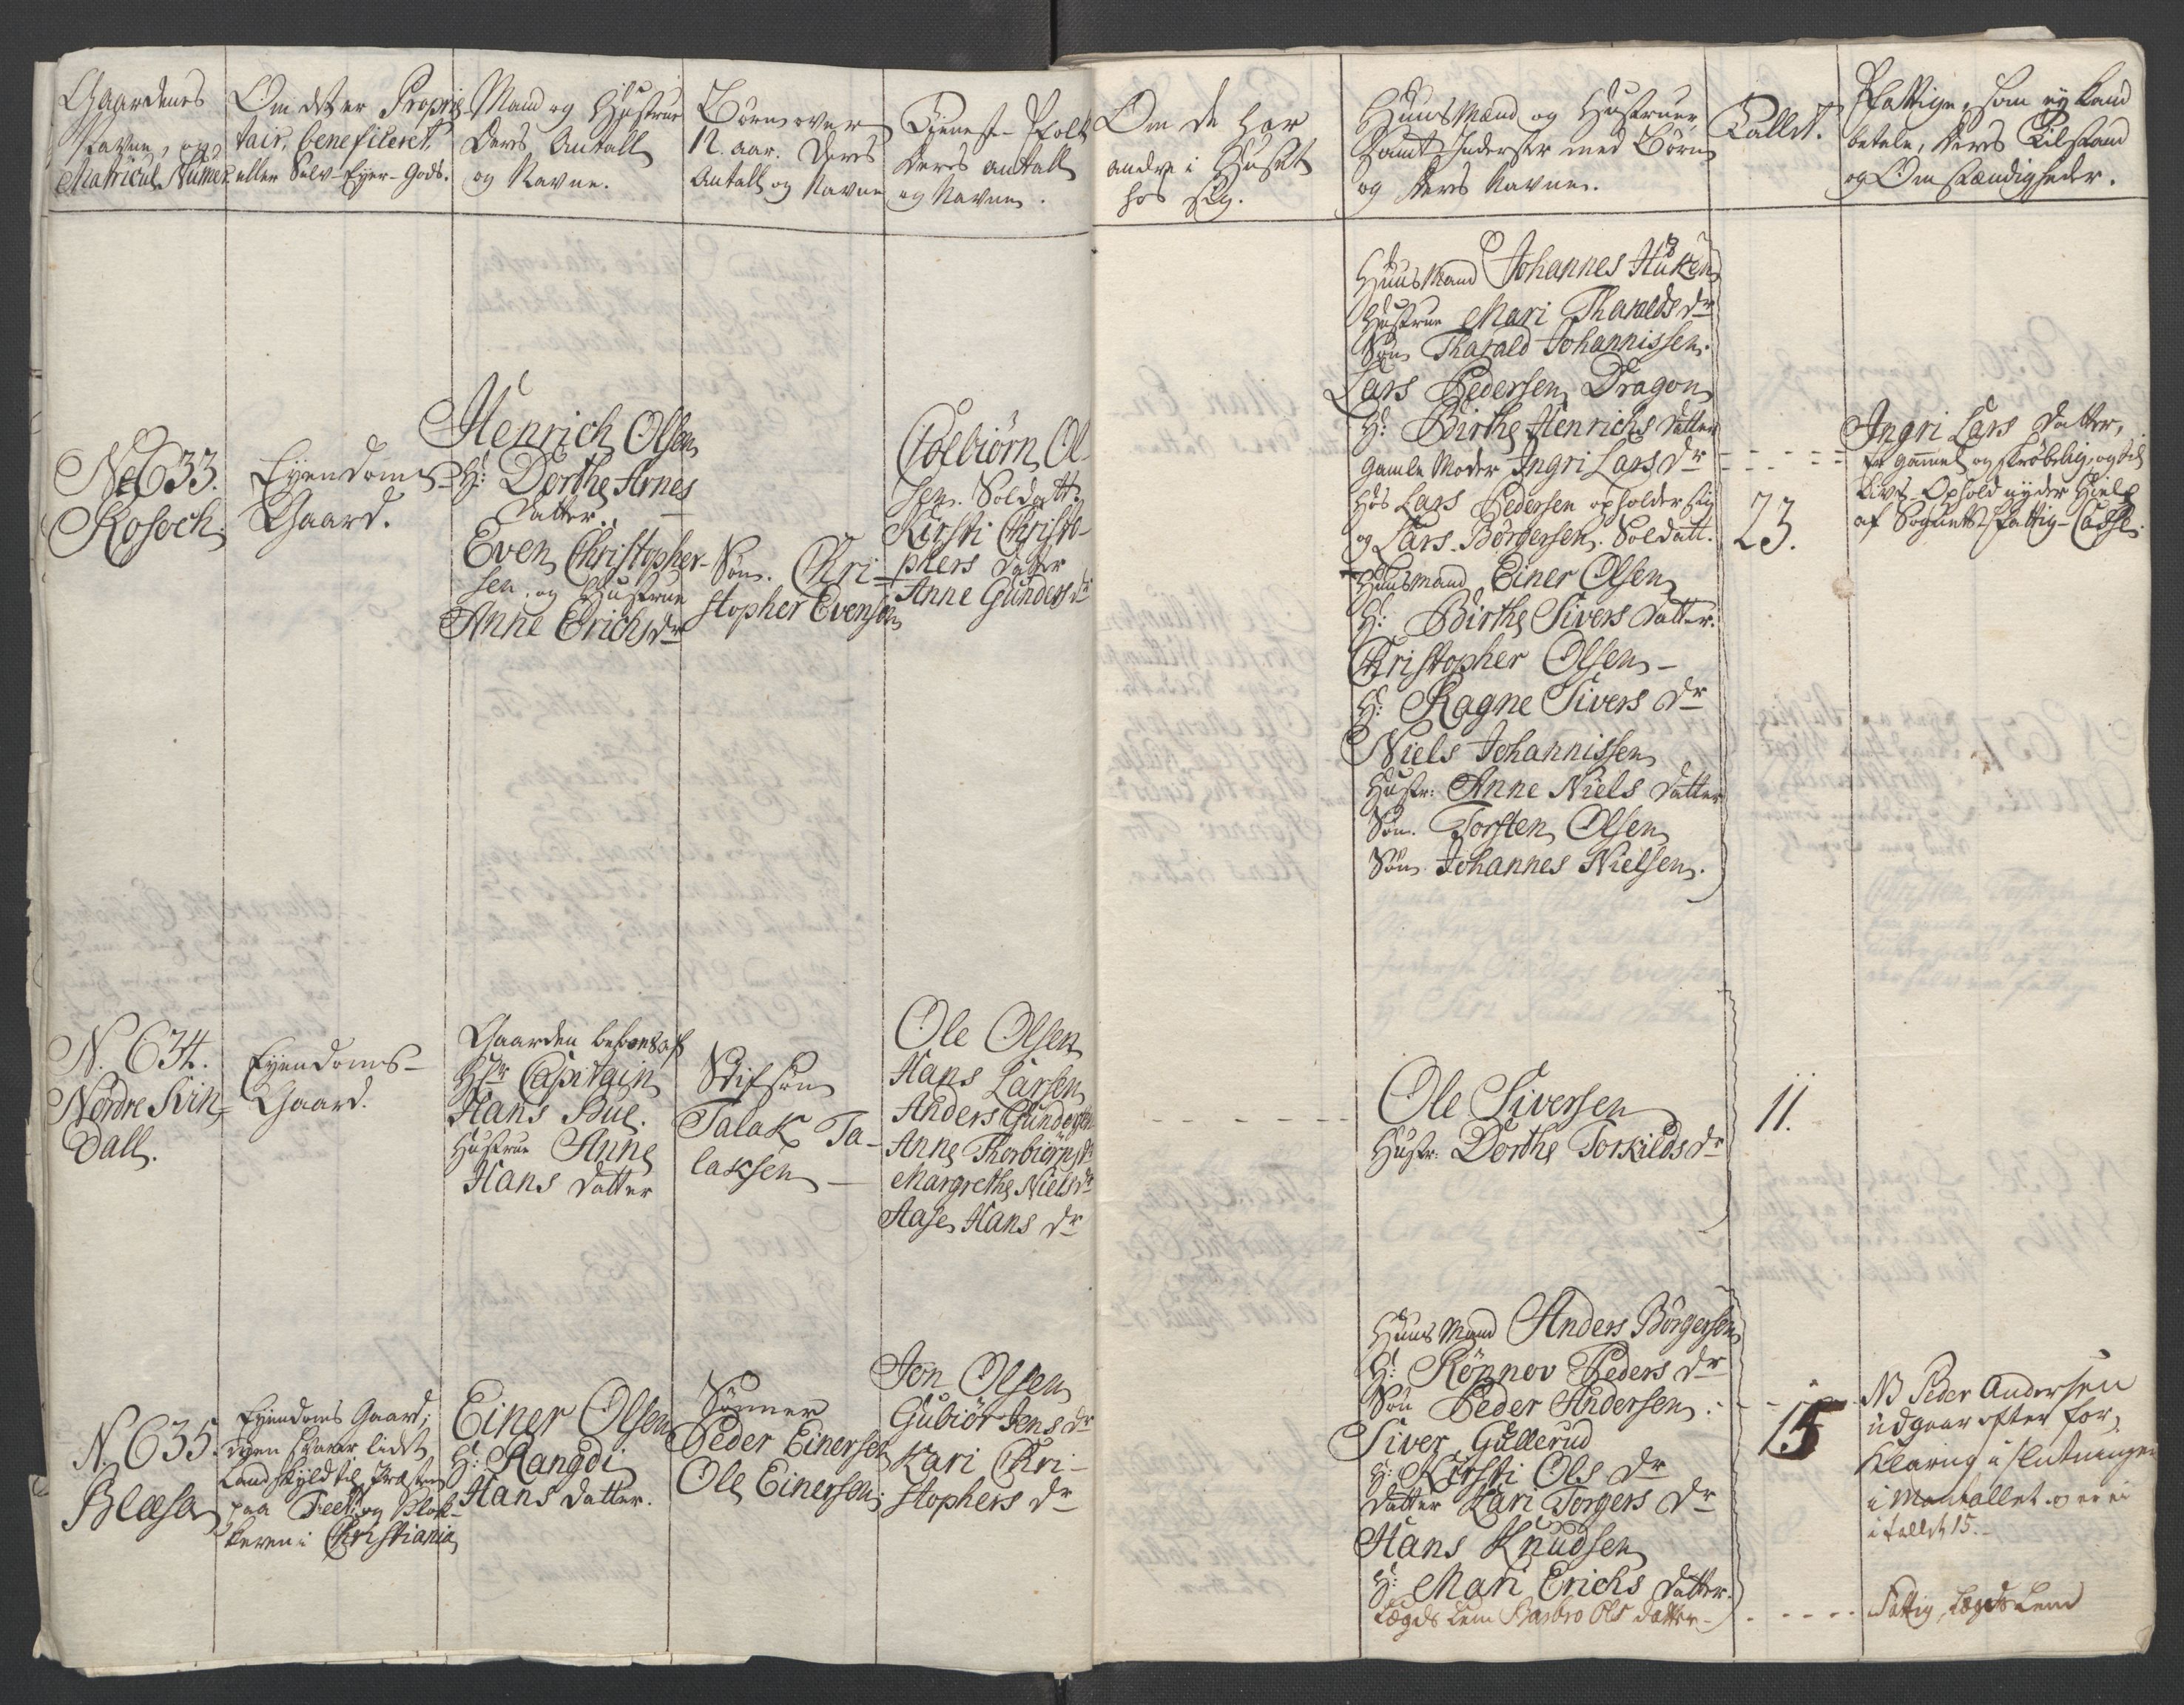 Gaardenes
Navne, og
Matricul. Numer
Om det er Proprie
tair, beneficeret,
eller Selv-Eyer-Gods.
Mand og Hustrue
Deres Antall
og Navne.
Børn over
12. aar. Deres
Antall og Navne
Tieneste-Folk
deres antall
og Navne.
Om de har
andre i Huset
hos sig.
Huusmænd og Hustruer,
Samt Inderster med Børn
og deres Navne.
Tallet.
Fattige, som ey kand
betale, deres Tilstand
og Omstændigheder.
No 633.
Rosoch.
Eyendoms-
Gaard.
Henrich Olsen
H: Dorthe Arnes
Datter.
Even Christopher-
sen, og Hustrue
Anne Erichs dr
Søn. Chri-
stopher Evensen
Colbiørn Ol-
sen. Soldatt
Kirsti Christo-
phers datter
Anne Gunders dr
Huusmand Johannes Huken
Hustrue Mari Tharalds dr
Søn Tharald Johannissen.
Lars Pedersen Dragon
H: Birthe Henrichs datter
gamle Moder Ingri Lars dr
hos Lars Pedersen opholder sig
og Lars Børgersen. Soldatt.
Huusmand Einer Olsen
H: Birthe Sivers datter.
Christopher Olsen -
H: Ragne Sivers dr
Niels Johannissen
Hustr: Anne Niels datter
Søn. Torsten Olsen
Søn Johannes Nielsen.
23.
Ingri Lars datter,
er gammel og skrøbelig, og til
Livs-Ophold nyder Hielp
af Sognets Fattig-Casse.
N. 634.
Nordre Kin-
dall.
Eyendoms-
Gaard.
Gaarden beboes af
Hr Capitain
Hans Bue.
Hustrue Anne
Hans datter
Stifsøn
Talak Ta-
laksen -
Ole Olsen
Hans Larsen
Anders Gundersen
Anne Thorbiørns dr
Margrethe Niels dr
Aase Hans dr
Ole Siversen
Hustr: Dorthe Torkilds dr
11.
N. 635.
Blæsa
Eyendoms Gaard;
igien svarer lidet
Landskyld til Præsten
paa og Klok-
keren i Christiania
Einer Olsen
H: Rangdi
Hans datter.
Sønner
Peder Einersen
Ole Einersen;
Jon Olsen
Gubiør Jens dr
Kari Chri-
stophers dr
Huusmand Anders Børgersen
H: Rønnov Peders dr
Søn Peder Andersen.
Siver Gullerud
H: Kirsti Ols dr
datter Kari Torgers dr
Hans Knudsen
H: Mari Erichs datter.
Lægds Lem Barbro Ols datter-
15
NB Peder Andersen
udgaar efter for-
klaring i slutningen
i Mantallet og er ei
i tallet 15.-
Fattig Lægds Lem